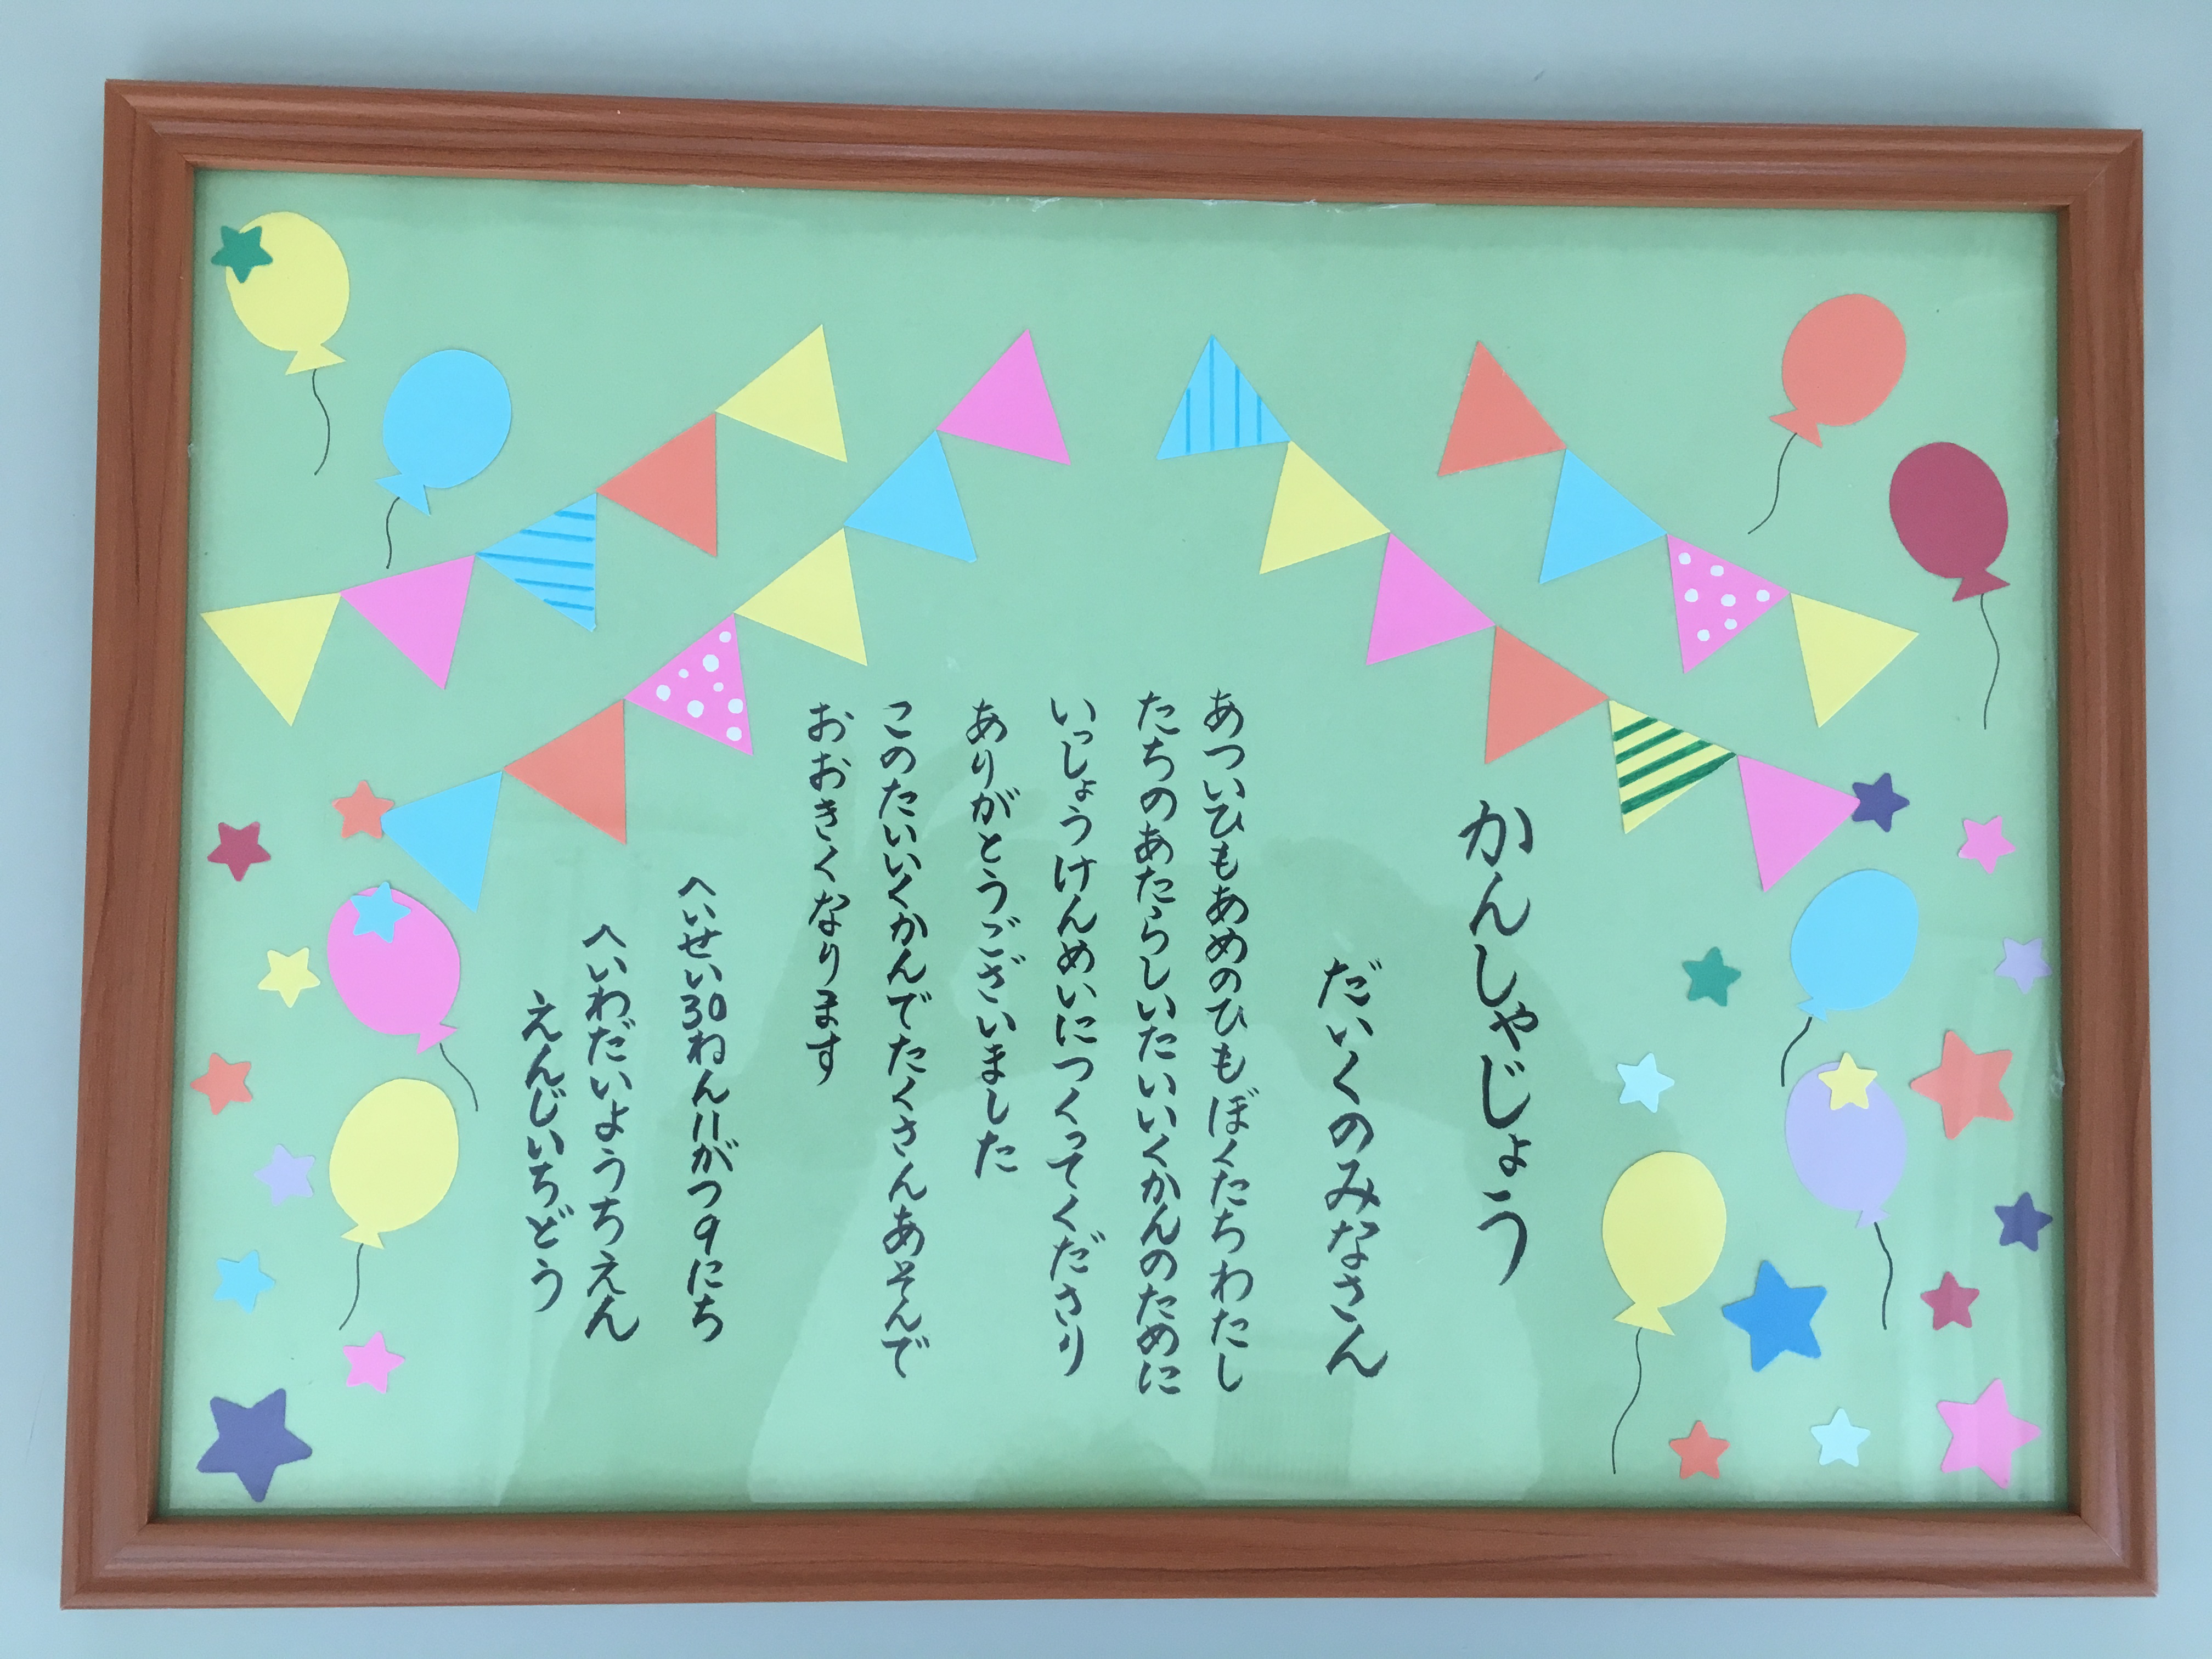 かんしゃじょう
だいくのみなさん
あついひもあめのひもぼくたちわたし
たちのあたらしいたいいくかんのために
いっしょうけんめいにつくってくださり
ありがとうございました
このたいいくかんでたくさんあそんで
おおきくなります
へいせい30ねん11がつ9にち
へいわだいようちえん
えんじいちどう